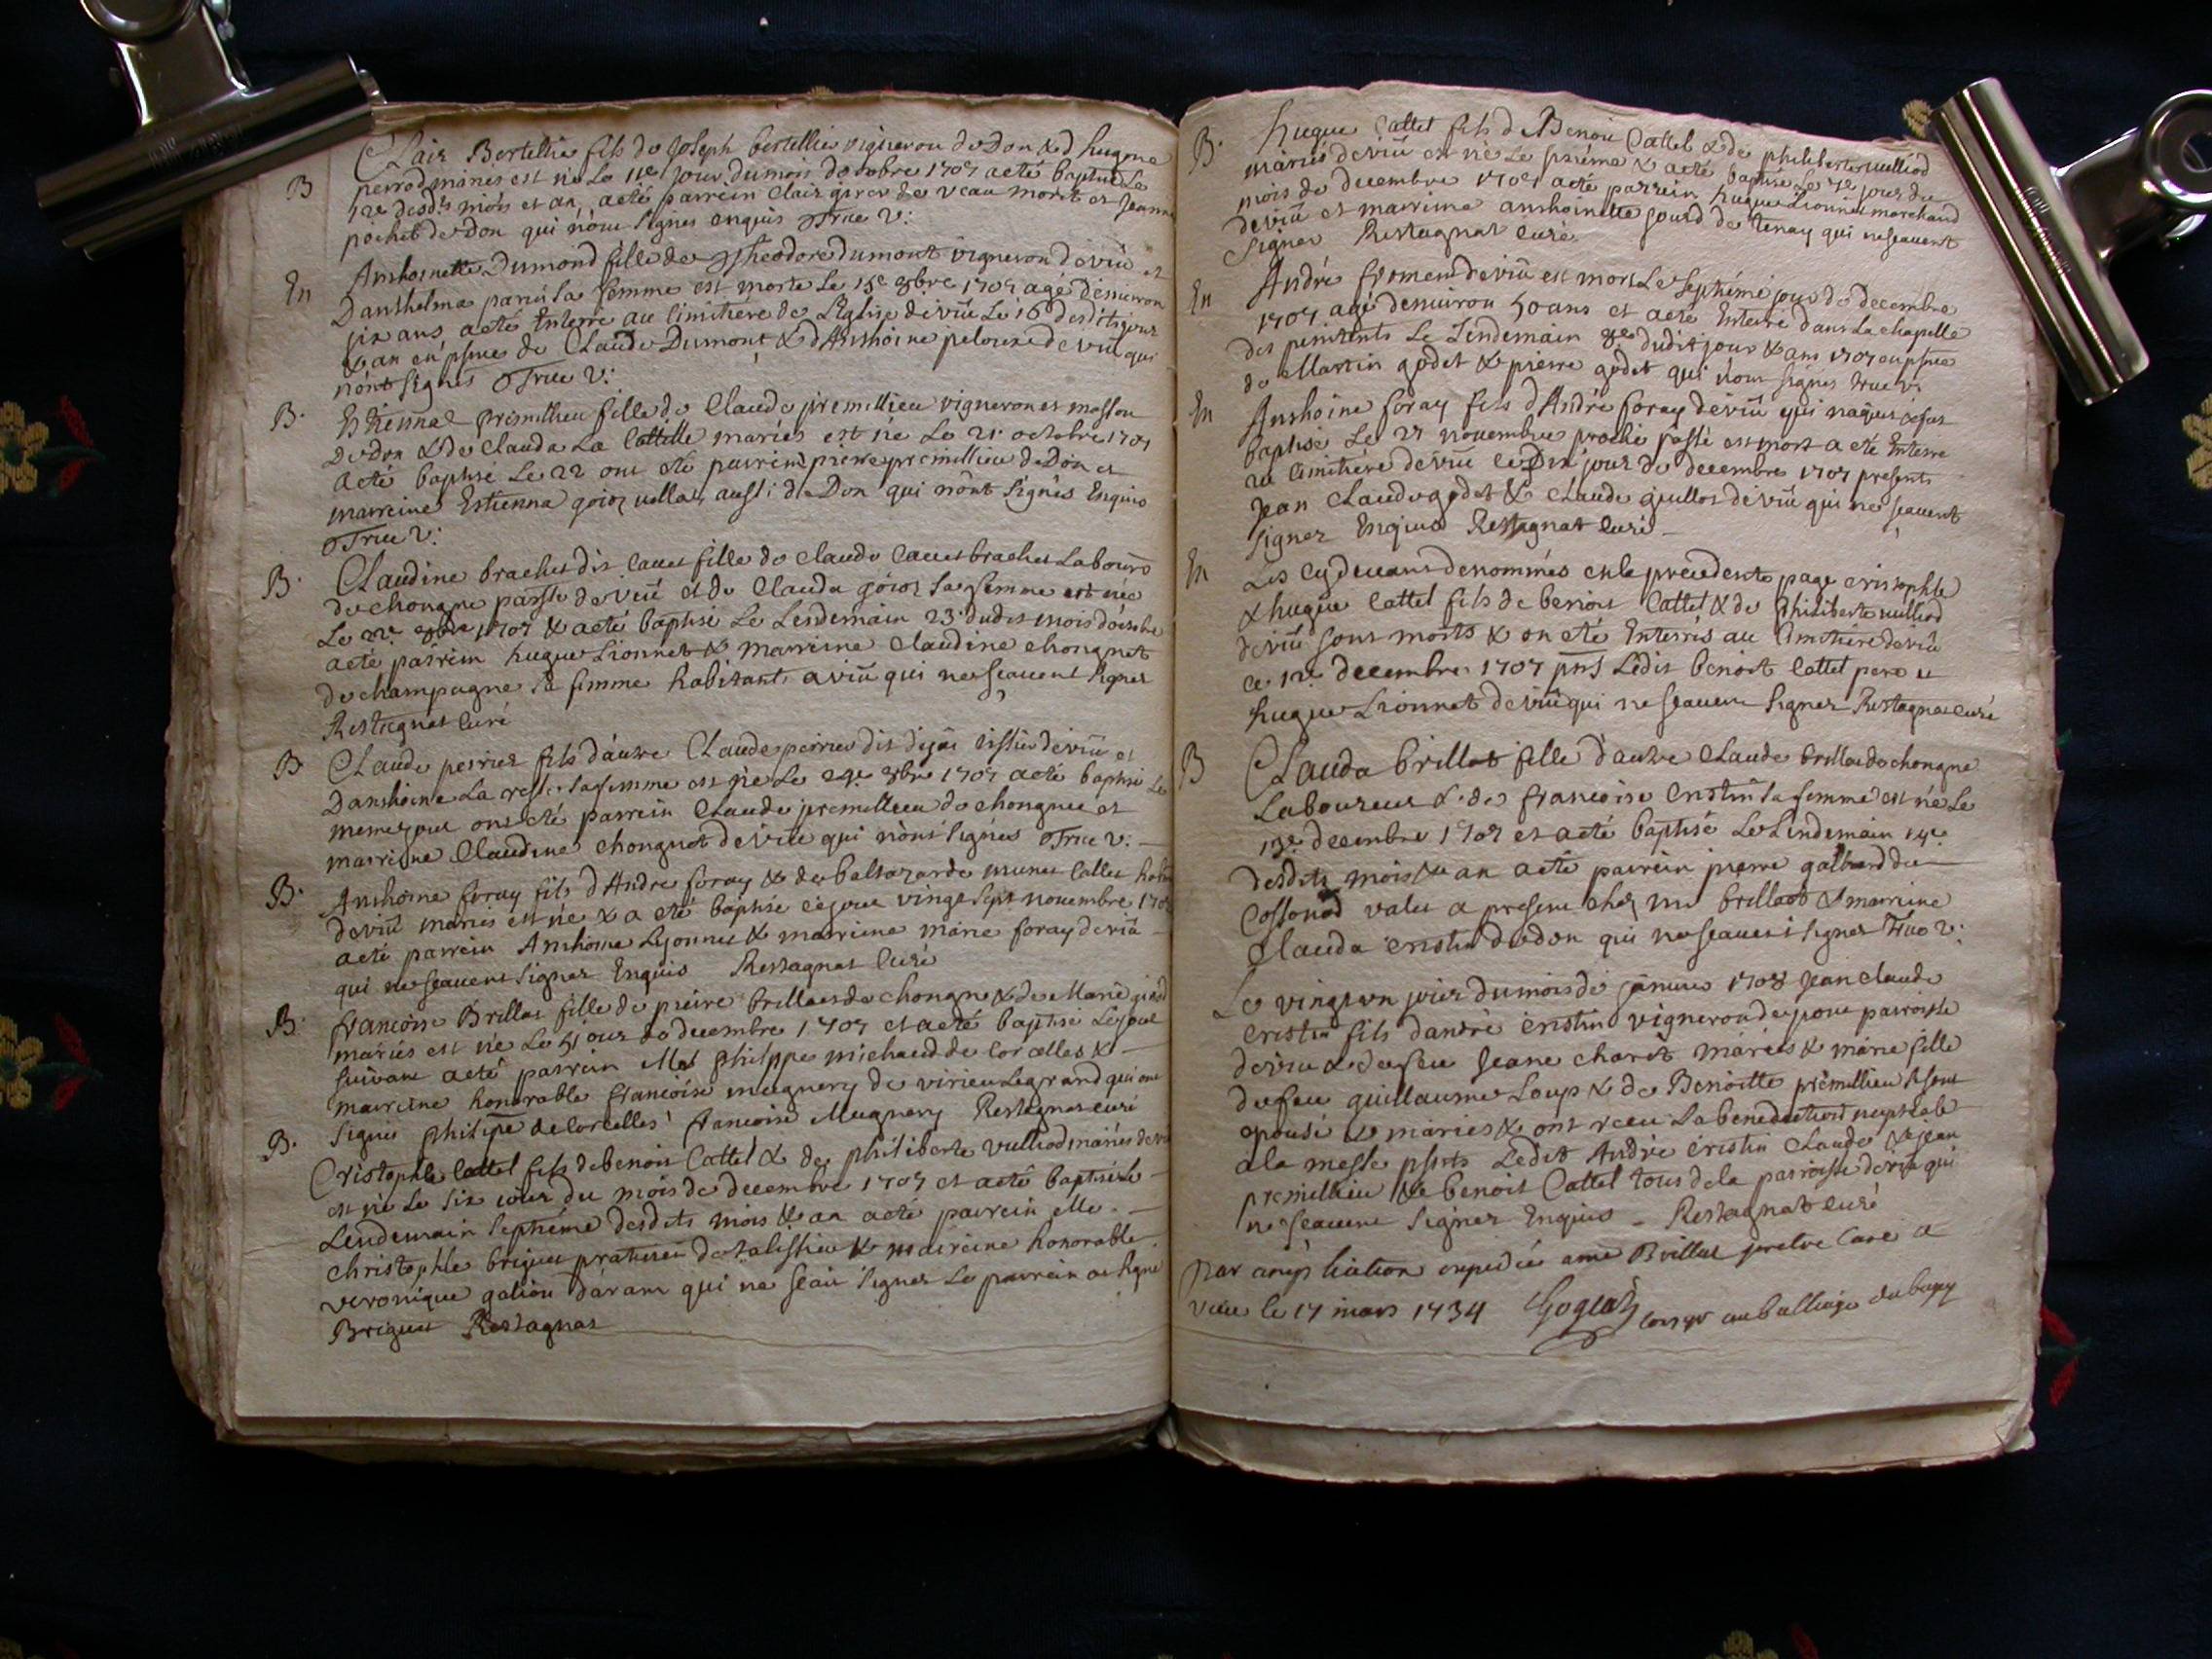 Clair Bertellie fils de Joseph bertellie vigneron de Don & d hugone
B
perrod mariés est né Le 11e jour du mois doctobre 1707 a eté baptisé Le
12e desdts mois et an, a eté parrein Clair de veau morit et Jeanne
pochet de don qui nont signés enquis OTrue V:
Anthoinette Dumond fille de Theodore dumont vigneron de viü et
En
Danthelma sa femme est morte Le 15e 8bre 1707 agé denuiron
six ans a eté Enterré au cimitiére de L'Eglise de viü Le 16 desdits jour
& an en pñce de Claude Dumont & d'Anthoine de viü qui
nont signés OTrue V:
B. Estienna premillieu fille de Claude premillieu vigneron et masson
de don & de Clauda La Cattille mariés est né Le 21 octobre 1707
a eté baptisé Le 22 ont eté parrein pierre premillieu de Don et
marreine Estienna aussi de Don qui nont signés Enquis
OTrue V:
B. Claudine brachet dit Cauet fille de Claude Cauet brachet Laboure
de chongne passe de viü et de Clauda goioz sa femme est née
Le 22e 8bre 1707 & a eté baptisé Le Lendemain 23 dudit mois doctobre
a eté parrein hugue Lionnet & marreine Claudine chongnet
de champagne sa femme habitants a viü qui ne sçauent signer
Restagnat Curé
B Claude perrier fils d'autre Claude perrier dit tissier de viü et
Danthoine La sa femme est né Le 24e 8bre 1707 a eté baptisé Le
meme jour ont eté parrein Claude premillieu de chongne et
marreine Claudine chongnet de viü qui nont signés OTrue V:
B. Anthoine foray fils d Andre foray & de baltazarde Cattet
de viü mariés est né & a eté baptisé ce jour vingt sept novembre 1707
a eté parrein Anthoine Lyonnet & marreine marie foray de viü
qui ne sçauent signer Enquis Restagnat Curé
B. francoise Brillat fille de pierre brillat de chongne & de Marie
mariés est né Le 5 jour de decembre 1707 et a eté baptisé Le jour
suivant a eté parrein Me philippe michaud de Corcelles &
marreine honorable francoise mugnery de virieu Le grand qui ont
signés philipe de Corcelles francoise Mugnery Restagnat curé
B.
Cristophle Cattet fils de benoit Cattet & de philiberte vulliod mariés de viü
est né Le six jour du mois de decembre 1707 et a eté baptisé Le
Lendemain septiéme desdits mois & an a eté parrein Me
Christophle briguet praticien de talissieu & marreine honorable
veronique galion d'aram qui ne sçait signer Le parrein a signé
Briguet Restagnat
B. hugue Cattet fils de Benoit Cattet & de philiberte vulliod
mariés de viü est né Le sixiéme & a eté baptisé Le 7e jour du
mois de decembre 1707 a eté parrein hugue Lionnet marchand
de viü et marreine anthoinette gourd de tenay qui ne sçauent
signer Restagnat Curé
André froment de viü est mort Le septiéme jour de decembre
En
1707 agé denuiron 50 ans et a eté Enterré dans La chapelle
des penitents Le Lendemain 8e dudit jour & an 1707 en pñce
de Martin godet & pierre godet qui nont signés True V:
En Anthoine foray fils d'André foray de viü qui naquit & fut
baptisé Le 27 novembre proche passé est mort a eté Enterré
au cimitiére de viü ce Dix jour de decembre 1707 presents
Jean Claude godet & Claude guillot de viü qui ne sçauent
signer Enquis Restagnat Curé
En Les cy deuant denommés en la precedente page cristophle
& hugue Cattet fils de benoit Cattet & de philiberte vulliod
de viü sont morts & on eté Enterrés au Cimitiére de viü
ce 12e decembre 1707 pñs Ledit benoit Cattet pere et
hugue Lionnet de viü qui ne sçauent signer Restagnat curé
B Clauda brillat fille d'autre Claude brillat de chongne
Laboureur & de francoise Cristin sa femme est né Le
13e decembre 1707 et a eté baptisé Le Lendemain 14e
desdits mois & an a eté parrein pierre galbrand de
Cossonod valet a present chez mr brillat & marreine
Clauda cristin de don qui ne sçauent signer True V:
Le vingt un jour du mois de janvier 1708 Jean Claude
Cristin fils d'andré cristin vigneron de poue parroisse
de viü & de feu Jeane charet mariés & marie fille
de feu guillaume Loup & de Benoitte premillieu se sont
epousé & mariés & ont receu La benediction nuptiale
a la messe pñts Ledit André cristin Claude & jean
premillieu & benoit Cattet tous de la parroisse de viü qui
ne sçauent signer Enquis - Restagnat curé
par ampliation expediée a mre Brillat pretre Curé a
vieu le 17 mars 1734 au balliage du bugey